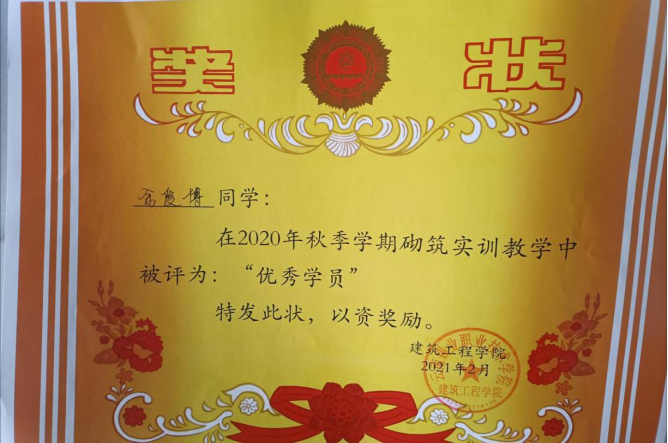 奖状
同学：
在2020年秋季学期砌筑实训教学中
被评为：“优秀学员”
特发此状，以资奖励。
建筑工程学院
2021年2月
建筑工程学院